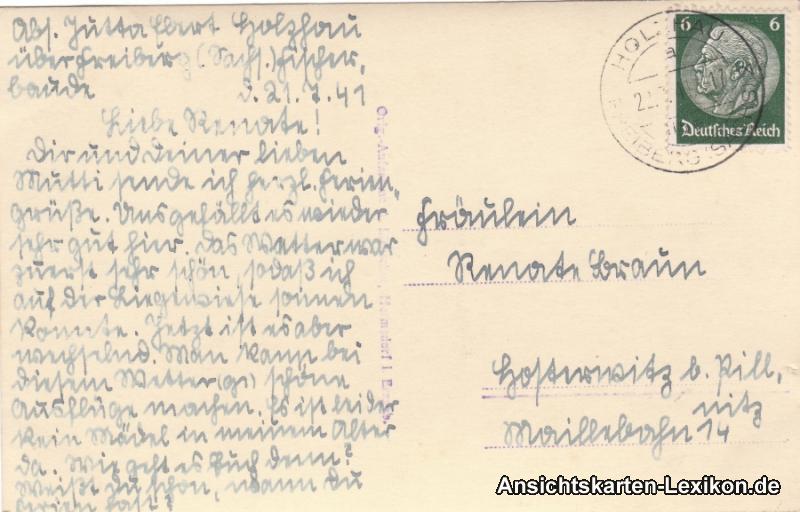 Abs. Jutta Ebert Holzhau
über Freiberg (Sachs.) Fischer,
baude d. 21.7.41
Liebe Renate!
Dir und deiner lieben
Mutti sende ich herzl. Ferien,
grüße. Uns gefällt es wieder
sehr gut hier. Das Wetter war
zuerst sehr schön, sodaß ich
auf der Liegewiese sonnen
konnte. Jetzt ist es aber
wechselnd. Man kann bei
diesem Wetter schöne
Ausflüge machen. Es ist leider
kein Mädel in meinem Alter
da. Wie geht es Euch denn?
Weißt du schon, wann du
Ferien hast?
HOLZHAU
FREIBERG (SA
6 6
Deutsches Reich
Fräulein
Renate Braun
Hosterwitz b. Pill,
nitz
Maillebahn 14
Hermsdorf i. Erzgb.
Ansichtskarten-Lexikon.de